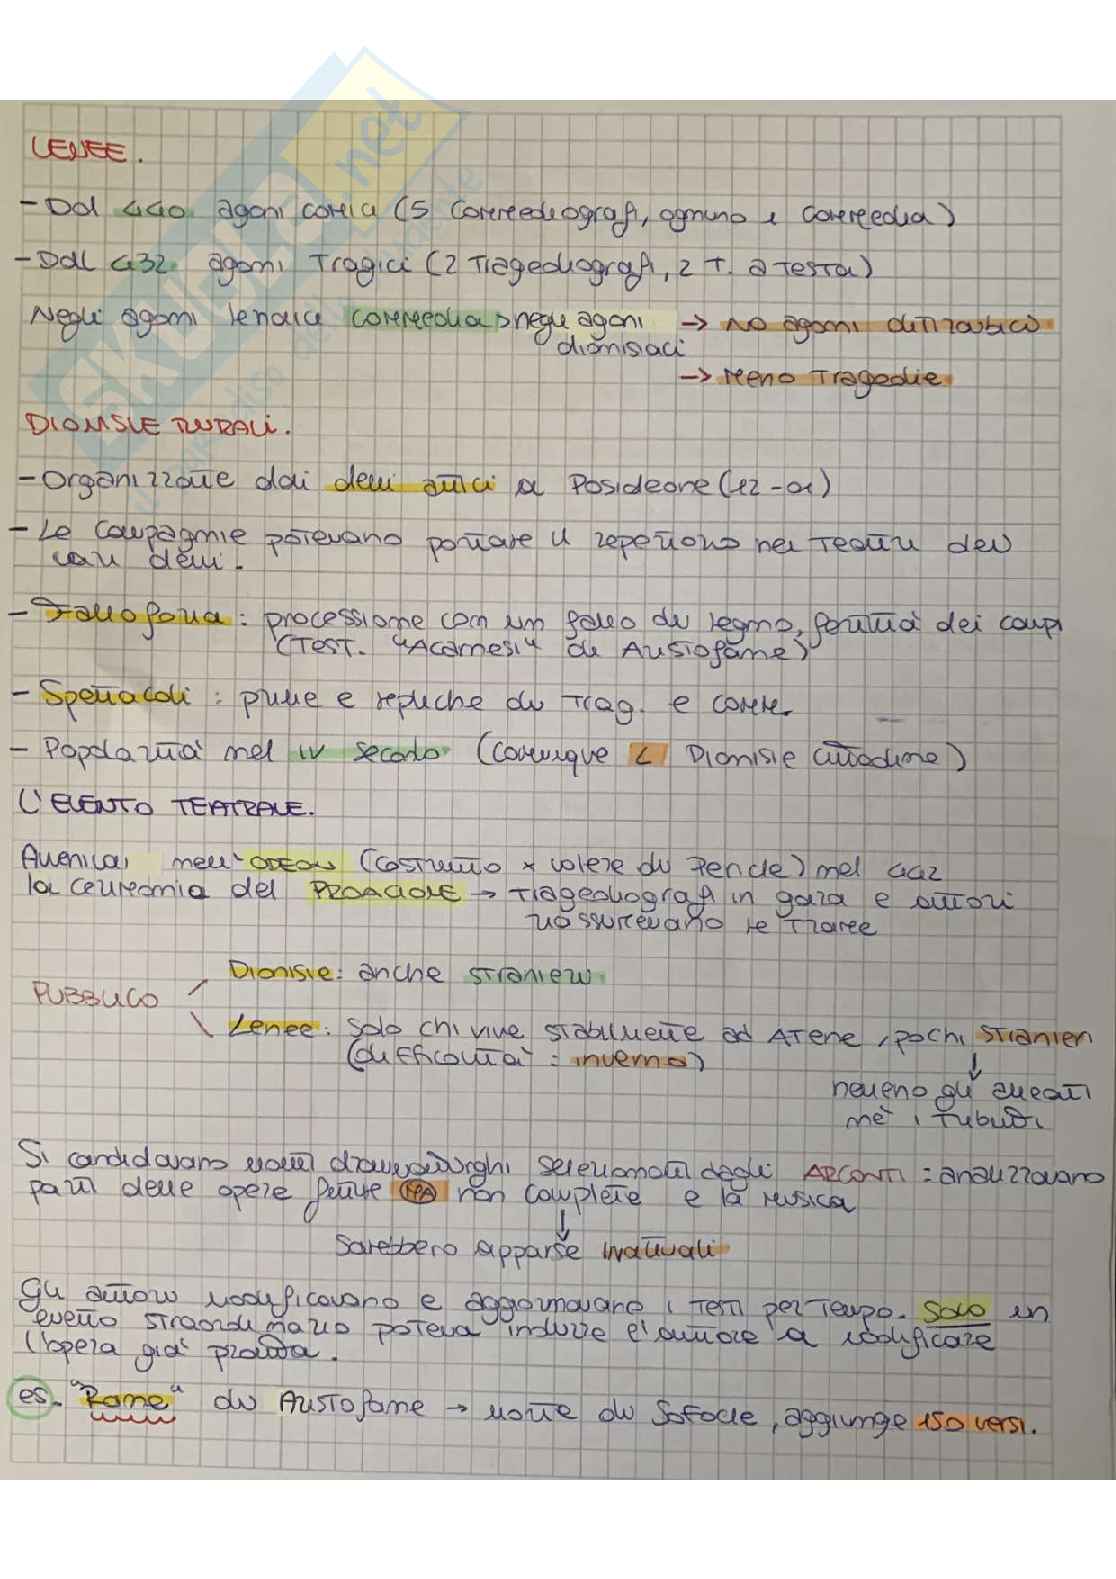 LENEE.
- Dal 440 agoni comici (5 commediografi, ognuno 1 commedia)
- Dal 432 agoni tragici (2 tragediografi, 2 t. a testa)
Negli agoni lenaici commedia > negli agoni dionisiaci → NO agoni ditirambici
→ Meno tragedie
DIONISIE RURALI.
- Organizzate dai demi attici a Posideone (12-01)
- Le compagnie potevano portare il repertorio nei teatri dei
vari demi.
- Falloforia: processione con un fallo di legno, fertilità dei campi
(Test. "Acarnesi" di Aristofane)
- Spettacoli: prime e repliche di trag. e comm.
- Popolarità nel IV secolo (comunque < Dionisie cittadine)
L'EVENTO TEATRALE.
Avveniva nell'ODEON (costruito x volere di Pericle) nel 442
la cerimonia del PROAGONE → tragediografi in gara e attori
riassumevano le trame
PUBBLICO
Dionisie: anche stranieri
Lenee: solo chi vive stabilmente ad Atene, pochi stranieri
(difficoltà: inverno)
nemmeno gli alleati
né i tributi
Si candidavano molti drammaturghi selezionati dagli ARCONTI: analizzavano
parti delle opere finite MA non complete e la musica
Sarebbero apparse inattuali
Gli attori modificavano e aggiornavano i testi per tempo. Solo un
evento straordinario poteva indurre l'autore a modificare
l'opera già provata.
es. "Rane" di Aristofane → morte di Sofocle, aggiunge 150 versi.